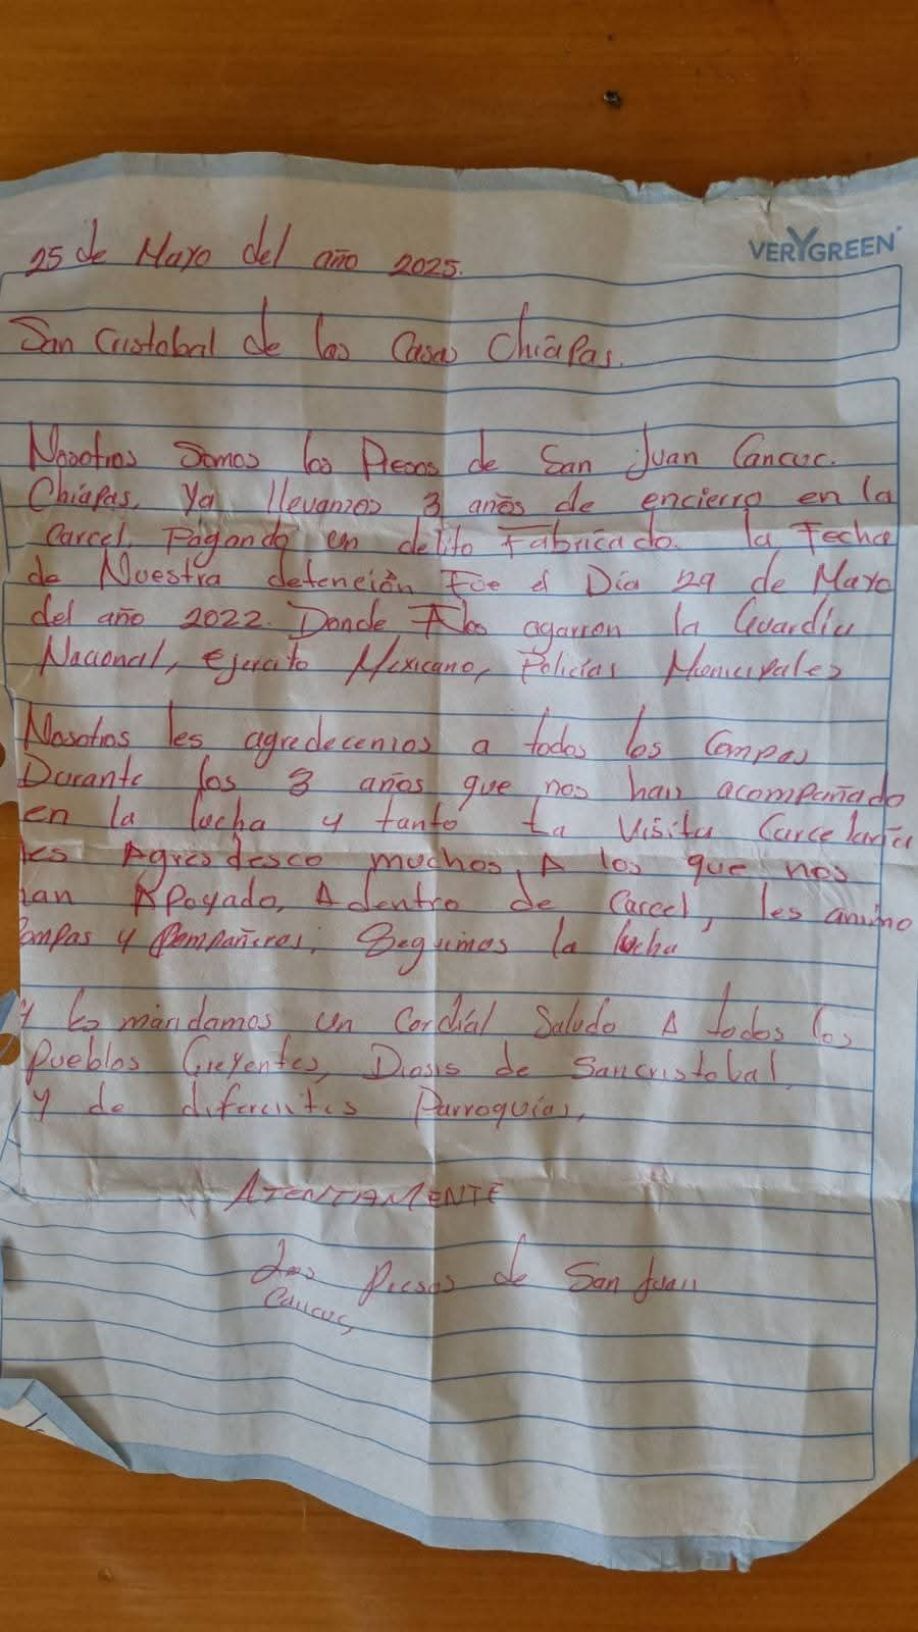 25 de Mayo del año 2025.
VERYGREEN
San Cristobal de las Casas Chiapas.
Nosotros Somos los Presos de San Juan Cancuc.
Chiapas, Ya llevamos 3 años de encierro en la
Carcel, Pagando un delito Fabricado. la Fecha
de Nuestra detención Fue el Día 29 de Mayo
del año 2022. Donde Nos agarron la Guardia
Nacional, ejercito Mexicano, Policias Municipales
Nosotros les agredecemos a todos los Compas
Durante los 3 años que nos han acompañado
en la lucha y tanto la Visita Carcelaria
les Agresdesco muchos, A los que nos
han Apoyado, Adentro de Carcel, les animo
Compas y Compañeras, Seguimos la lucha
Y les mandamos un Cordial Saludo A todos los
Pueblos Creyentes, Diosis de Sancristobal,
y de diferentes Parroquias,
ATENTAMENTE
Los Presos de San Juan
Cancuc,